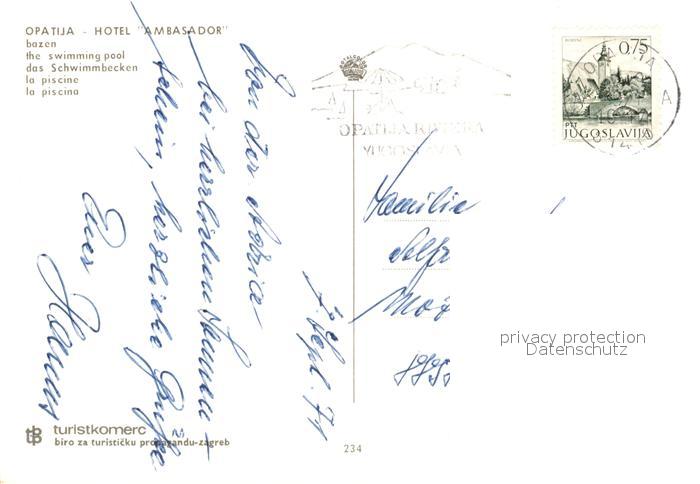 OPATIJA - HOTEL "AMBASADOR"
bazen
the swimming pool
das Schwimmbecken
la piscine
la piscina
0,75
PTT
JUGOSLAVIJA
OPATIJA RIVIERA
YUGOSLAVIA
OPATIJA
7. Sept. 71
Von der Adria
bei herrlichem Sonnen-
schein, herzliche Grüße
Euer
Hannes
Familie
Alfr
privacy protection
Datenschutz
turistkomerc
biro za turističku propagandu-zagreb
234